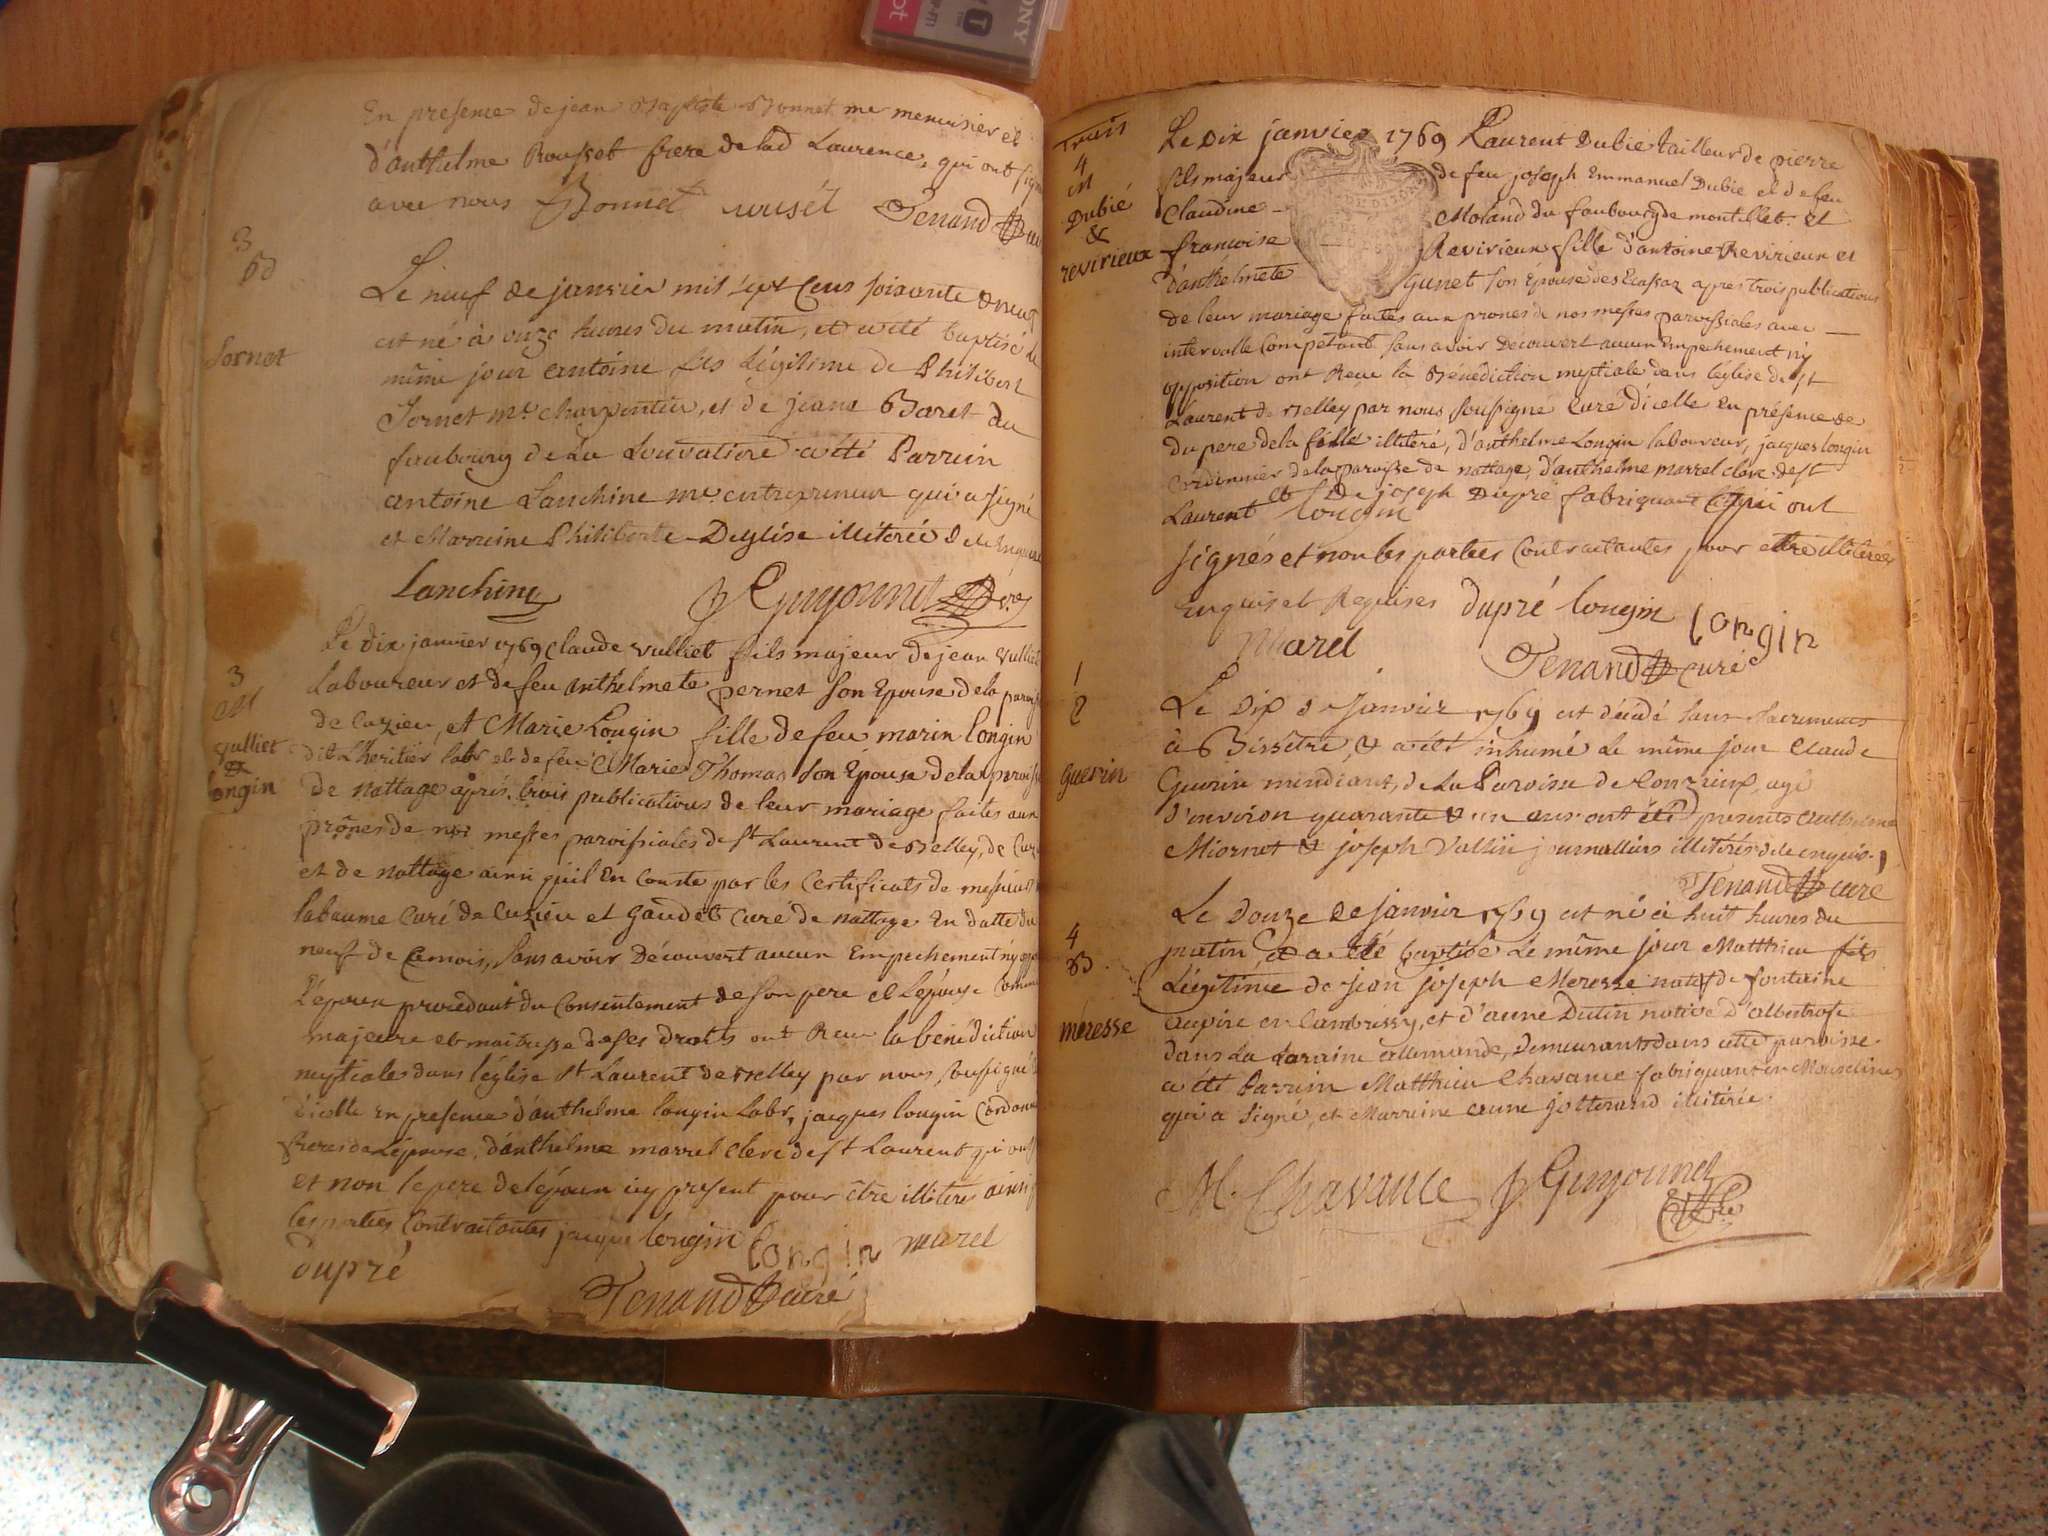 SONY
En presence de jean Baptiste Bonnet me menuisier et
d'anthelme Rousset frere de lad Laurence, qui ont signé
avec nous Bonnet rousét Tenand
3
Bd
Sornet
Le neuf de janvier mil sept Cens soixante & neuf
est né à onze heures du matin, et a eté baptisé le
même jour antoine fils légitime de Philibert
Sornet me. charpentier, et de jeane Baret du
faubourg de La Louvatiere a été Parrein
antoine Lanchine me entrepreneur qui a signé
et Marreine Philiberte Deglise illiterée de Enquise
Lanchine J Guyonnet
3
Vulliet
&
longin
Le Dix janvier 1769 Claude Vulliet fils majeur de jean Vulliet
Laboureur et de feu anthelmete pernet son Epouse de la paroisse
de Cuzieu, et Marie Longin fille de feu marin longin
dit L'heritier labr et de feu Marie Thomas son Epouse de la paroisse
de nattage après trois publications de leur mariage faites aux
prônes de nos messes paroissiales de St Laurent de Belley, de Cuzieu
et de nattage ainsi quil En Conste par les Certificats de messieurs
labaume Curé de Cuzieu et Gaudet Curé de nattage En datte du
neuf de Ce mois, sans avoir Découvert aucun Empechement ny
L'époux procédant du Consentement de son pere et L'épouse Comme
majeure et maitresse de ses droits ont Reçu la bénédiction
nuptiale dans l'église St Laurent de Belley par nous soussigné
d'icelle En presence d'anthelme longin Labr, jacques longin Cordonnier
freres de L'épouse, d'anthelme marrel clerc de St Laurent qui ont
et non le pere de l'époux icy present pour être illiteré ainsi
les parties Contractantes jacque longin longin marel
dupré Tenand curé
Trois
4
Dubié
&
revirieux
Le Dix janvier 1769 Laurent Dubié tailleur de pierre
fils majeur de feu joseph Emmanuel Dubié et de feu
Claudine Moland du faubourg de montillet. et
francoise Revirieux fille d'antoine Revirieux et
d'anthelmete Gunet son Epouse aprés trois publications
de leur mariage faites aux prones de nos messes paroissiales avec
intervalle Competant sans avoir Découvert aucun Empechement n'y
opposition ont Reçu la Bénédiction nuptiale dans l'église de St
Laurent de Belley par nous soussigné Curé d'icelle En présence de
du pere de la fille illiteré, d'anthelme Longin laboureur, jacques longin
Cordonnier de la paroisse de nattage, d'anthelme marrel clerc de St
Laurent et de joseph Dupré fabriquant qui ont
longin
signés et non les parties Contractantes pour etre illiterées
Enquis et Requises dupré longin longin
marel Tenand curé
1
Guerin
Le Dix de Janvier 1769 est décédé sans sacrements
à Bissétre, & a été inhumé Le même jour Claude
Guerin mendiant, de La Paroisse de Conzieux, agé
d'environ quarante & un ans ont été presents anthelme
Miornet & joseph Vallin journalliers illitérés de enquis.
Tenand curé
4
B
meresse
Le Douze de Janvier 1769 est né à huit heures du
matin, et a été baptisé Le même jour Matthieu fils
Légitime de jean joseph Meresse natif de fontaine
aupire en Cambressy, et d'anne Dutin native d'albestrof
dans La Loraine allemande, Demeurants dans cette paroisse.
a été Parrein Matthieu Chavance fabriquant en Mouseline
qui a signé, et Marreine anne jotterand illitérée.
M. Chavance J Guyonnet